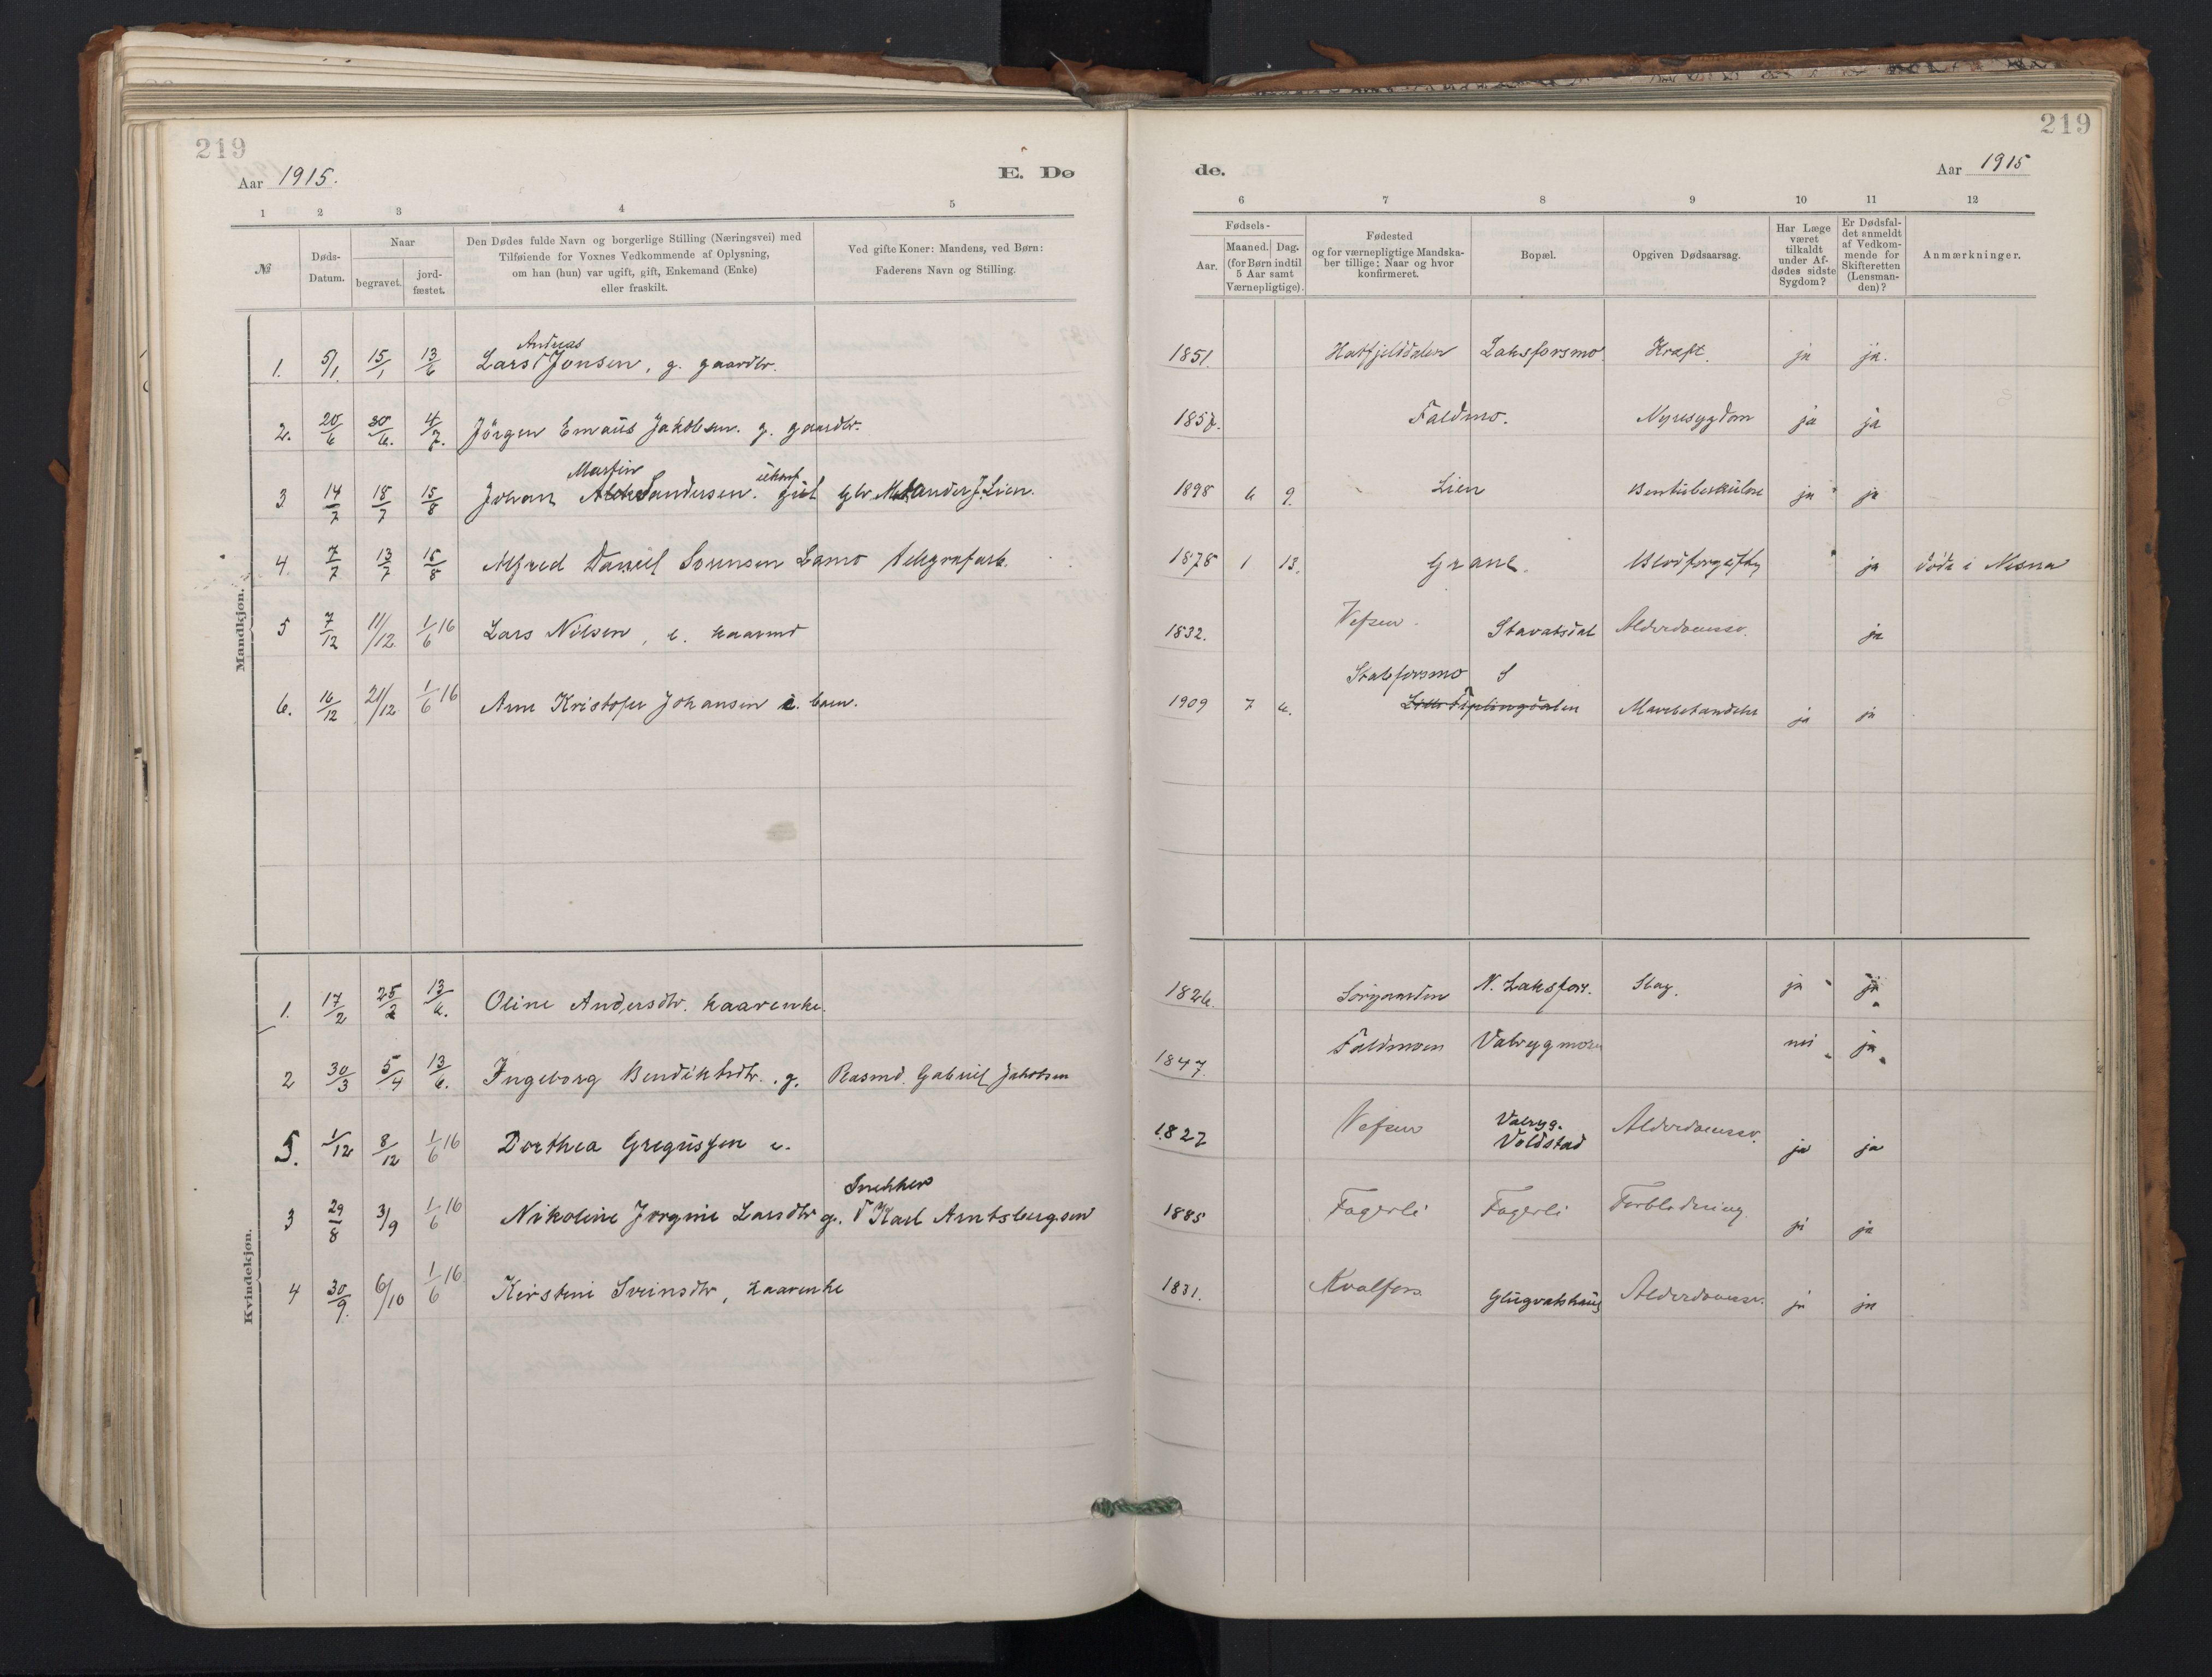 219
Aar 1915.
E. Dø
1 2 3 4 5
№
Døds-
Datum.
Naar
begravet.
jord-
fæstet.
Den Dødes fulde Navn og borgerlige Stilling (Næringsvei) med
Tilføiende for Voxnes Vedkommende af Oplysning,
om han (hun) var ugift, gift, Enkemand (Enke)
eller fraskilt.
Ved gifte Koner: Mandens, ved Børn:
Faderens Navn og Stilling.
Mandkjøn.
Andreas
1. 5/1. 15/1 13/6 Lars Jonsen, g. gaardbr.
2. 20/6 30/6. 4/7. Jörgen Emaüs Jakobsen. g. gaardbr.
Martin ükonf
3 14/7 18/7 15/8 Johan Aleksandersen. güt gbr Aleksander J. Lien.
4. 7/7 13/7 15/8 Alfred Daniel Sorensen Lamo telegrafarb.
5 7/12 11/12 1/6 16 Lars Nilsen, e. kaarmd
6. 16/12 21/12 1/6 16 Arne Kristofer Johansen barn.
Kvindekjøn.
1. 17/2 25/2 13/6. Oline Andersdtr. kaarenke.
2 30/3 5/4 13/6. Ingeborg Bendiktsdtr. g. Rasmd. Gabriel Jakobsen
5. 1/12 8/12 1/6 16 Dorthea Gregüssen e.
Snekker
3 29/8 3/9 1/6 16 Nikoline Jorgine Larsdtr g. Karl Arntsbergsen
4 30/9. 6/10 1/6 16 Kirstine Svinsdtr, kaarenke
219
de.
Aar 1915
6 7 8 9 10 11 12
Fødsels-
Aar.
Maaned. Dag.
(for Børn indtil
5 Aar samt
Værnepligtige).
Fødested
og for værnepligtige Mandska-
ber tillige: Naar og hvor
konfirmeret.
Bopæl.
Opgiven Dødsaarsag.
Har Læge
været
tilkaldt
under Af-
dødes sidste
Sygdom?
Er Dødsfal-
det anmeldt
af Vedkom-
mende for
Skifteretten
(Lensman-
den)?
Anmærkninger.
1851. Hatfjelddalen Laksforsmo Kræft. ja ja.
1857. Faldmo. Nyresygdom ja ja
1898 6 9. Lien Bentüberkülose ja ja
1878 1 13. Grane. Blodforgiftn ja död i Nesna
1832. Vefsen. Stavatsdal Alderdomssv. ja
Stabforsmo S
1909 7 6. Lille Fiplingdalen ja ja
1826. Sörgaarden N. Laksfors. Slag. ja ja
1847 Faldmoen Valryggmoen nei ja
Valrygg.
1827 Vefsen Voldstad Alderdomssv. ja ja
1885 Fagerli Fagerli Forblödning. ja ja
1831. Kvalfors Glügvatshaüg Alderdomssv. ja ja